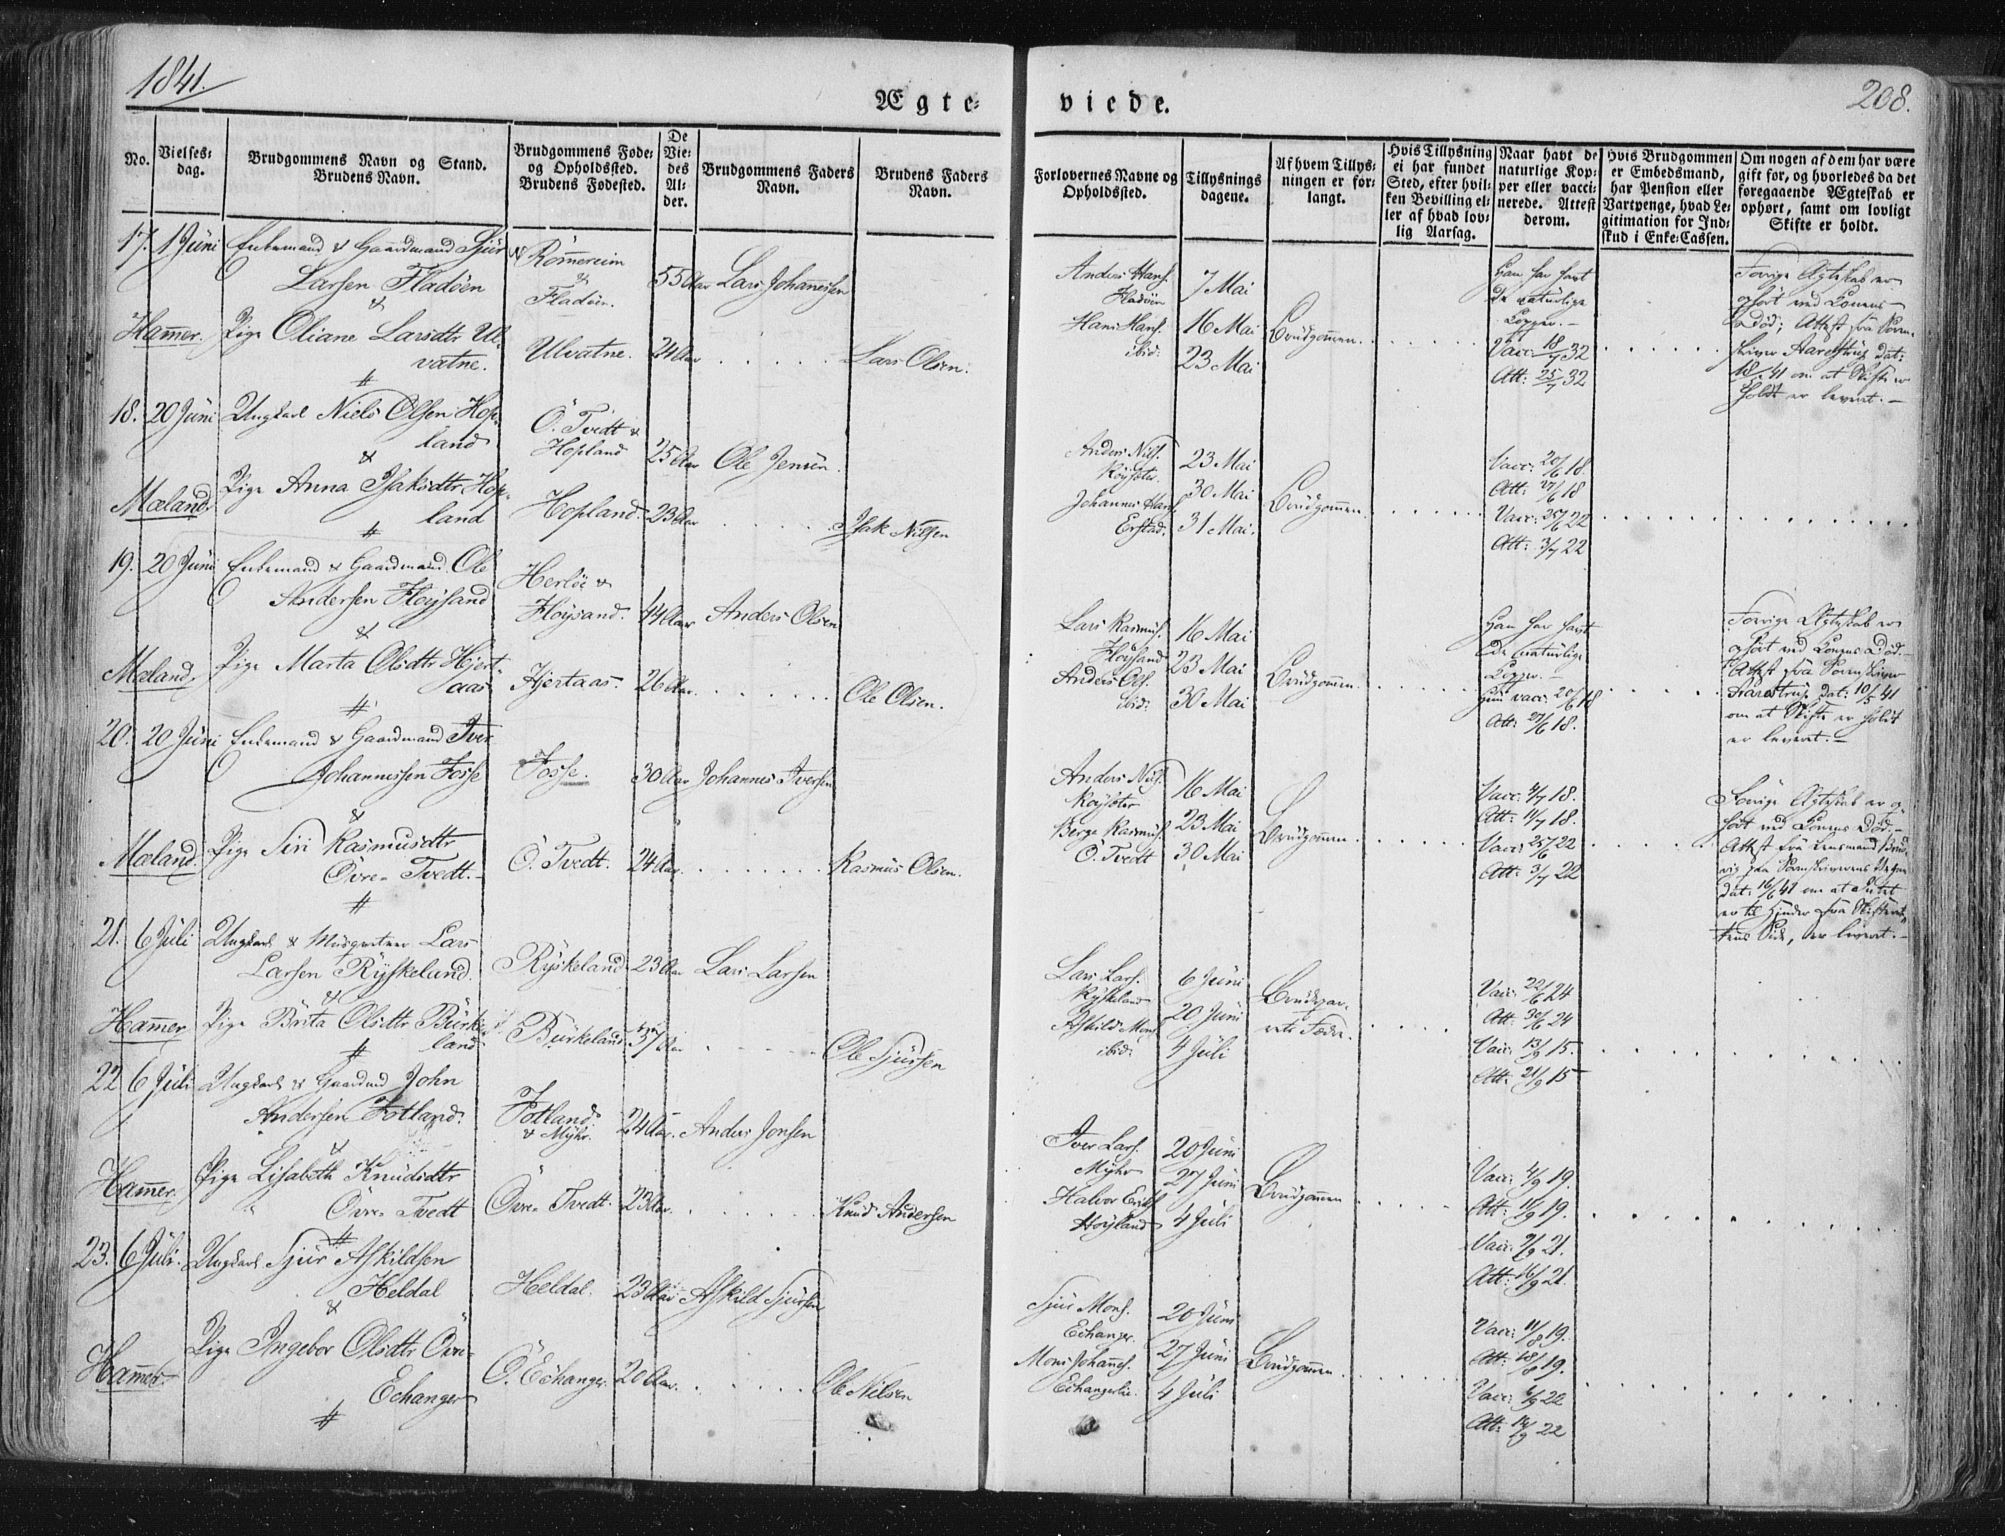 1841.
208.
Ægte=
viede.
No.
Vielses=
dag.
Brudgommens Navn og Stand.
Brudens Navn.
Brudgommens Føde=
og Opholdssted.
Brudens Fødested.
De
Vie=
des
Al=
der.
Brudgommens Faders
Navn.
Brudens Faders
Navn.
Forlovernes Navne og
Opholdssted.
Tillysnings
dagene.
Af hvem Tillys=
ningen er for=
langt.
Hvis Tillysning
ei har fundet
Sted, efter hvil=
ken Bevilling el=
ler af hvad lov=
lig Aarsag.
Naar havt de
naturlige Kop=
per eller vacci=
nerede. Attest
derom.
Hvis Brudgommen
er Embedsmand,
har Pension eller
Vartpenge, hvad Le=
gitimation for Ind=
skud i Enke=Cassen.
Om nogen af dem har være
gift før, og hvorledes da det
foregaaende Ægteskab er
ophørt, samt om lovligt
Skifte er holdt.
17. 1 Juni Enkemand & Gaardmand Sjur
Larsen Fladöen
&
Hammer. Pige Oliane Larsdtr Ul-
vatne.
#
Römmereim
&
Fladöen.
Ulvatne.
55 Aar
24 Aar
Lars Johannessen
Lars Olsen.
Anders Hans.
Fladöen
Hans Hans.
ibid.
7 Mai
16 Mai
23 Mai
Brudgommen.
Han har havt
de naturlige
Kopper.-
Vacc: 18/7 32
Att: 25/7 32
Forrige Ægteskab er
ophört ved Konens
Död; Attest fra Soren-
skriver Aarestrup dat:
om at Skifte er
holdt er leveret.-
18. 20 Juni Ungkarl Niels Olsen Hop-
land
&
Mæland. Pige Anna Isaksdtr Hop-
land
#
Ö. Tvedt &
Hopland
Hopland.
25 Aar
23 Aar
Ole Jensen
Isak Nilsen
Anders Nils.
Röyster.
Johannes Hans.
Erstad.
23 Mai
30 Mai
31 Mai.
Brudgommen.
Vacc: 20/6 18.
Att: 27/6 18
Vacc: 25/6 22
Att: 3/7 22
19. 20 Juni Enkemand & Gaardmand Ole
Andersen Flöysand
&
Mæland. Pige Marta Olsdtr Hjert-
aas
#
Herlöe &
Flöysand.
Hjertaas.
44 Aar
26 Aar.
Anders Olsen
Ole Olsen.
Lars Rasmus.
Flöysand
Anders Ols.
ibid.
16 Mai
23 Mai
30 Mai
Brudgommen.
Han har havt
de naturlige
Kopper.-
Hun vacc: 20/6 18
Att: 27/6 18.
Forrige Ægteskab er
ophört ved Konens Död.-
Attest fra Sorenskriver
Aarestrup dat: 10/5 41
om at Skifte er holdt
er leveret.-
20. 20 Juni Enkemand & Gaardmand Iver
Johannessen Fosse
&
Mæland. Pige Siri Rasmusdtr
Övre- Tvedt.-
#
Fosse.
Ö. Tvedt.
30 Aar
24 Aar.
Johannes Iversen
Rasmus Olsen.
Anders Nils.
Röyster
Berge Rasmus.
Ö. Tvedt
16 Mai
23 Mai
30 Mai
Brudgommen.
Vacc: 4/7 18.
Att: 11/7 18.
Vacc: 25/6 22
Att: 3/7 22
Forrige Ægteskab er op-
hört ved Konens Död.-
Attest fra Lensmand
paa Sorenskriverens Vegne
dat: 16/5 41 om at Intet
er til Hinder fra Skifteret-
tens Side, er leveret.-
21. 6 Juli Ungkarl & Musqueteer Lars
Larsen Rysskeland.
&
Hammer Pige Brita Olsdtr Burke-
land.
#
Ryskeland
Burkeland
23 Aar
37 Aar
Lars Larsen
Ole Sjursen
Lars Lars.
Ryskeland
Askild Mons.
ibid.
6 Juni
20 Juni
4 Juli
Brudepar-
rets Fædre.
Vacc: 22/6 24
Att: 30/6 24
Vacc: 13/9 15.
Att: 21/9 15
22 6 Juli Ungkarl & Gaardmd John
Andersen Fotland.
&
Hammer. Pige Lisabeth Knudsdtr
Övre- Tvedt
#
Fotland.
& Myhr.
Övre- Tvedt.
24 Aar.
23 Aar.
Anders Jonsen
Knud Andersen
Iver Lars.
Myhr
Halvor Eriks.
Höyland
20 Juni
27 Juni
4 Juli
Brudgommen
Vacc: 4/9 19.
Att: 11/9 19.
Vacc: 9/9 21.
Att: 16/9 21.
23. 6 Juli. Ungkarl Sjur Askildsen
Heldal
&
Hammer. Pige Ingebor Olsdtr Övre-
Echanger
#
Heldal.
Ö. Echanger.
23 Aar
20 Aar.
Askild Sjursen
Ole Nilsen
Sjur Mons.
Echanger.
Mons Johannes.
20 Juni
27 Juni
4 Juli
Brudgommen.
Vacc: 11/8 19.
Att: 18/8 19.
Vacc: 6/9 22
Att: 14/9 22